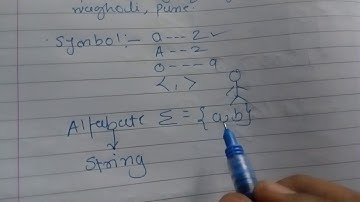 waghodi, Pune.
Symbol:- a---z ✓
A--z
0---9
< , >
Alfabate Σ = {a,b}
String